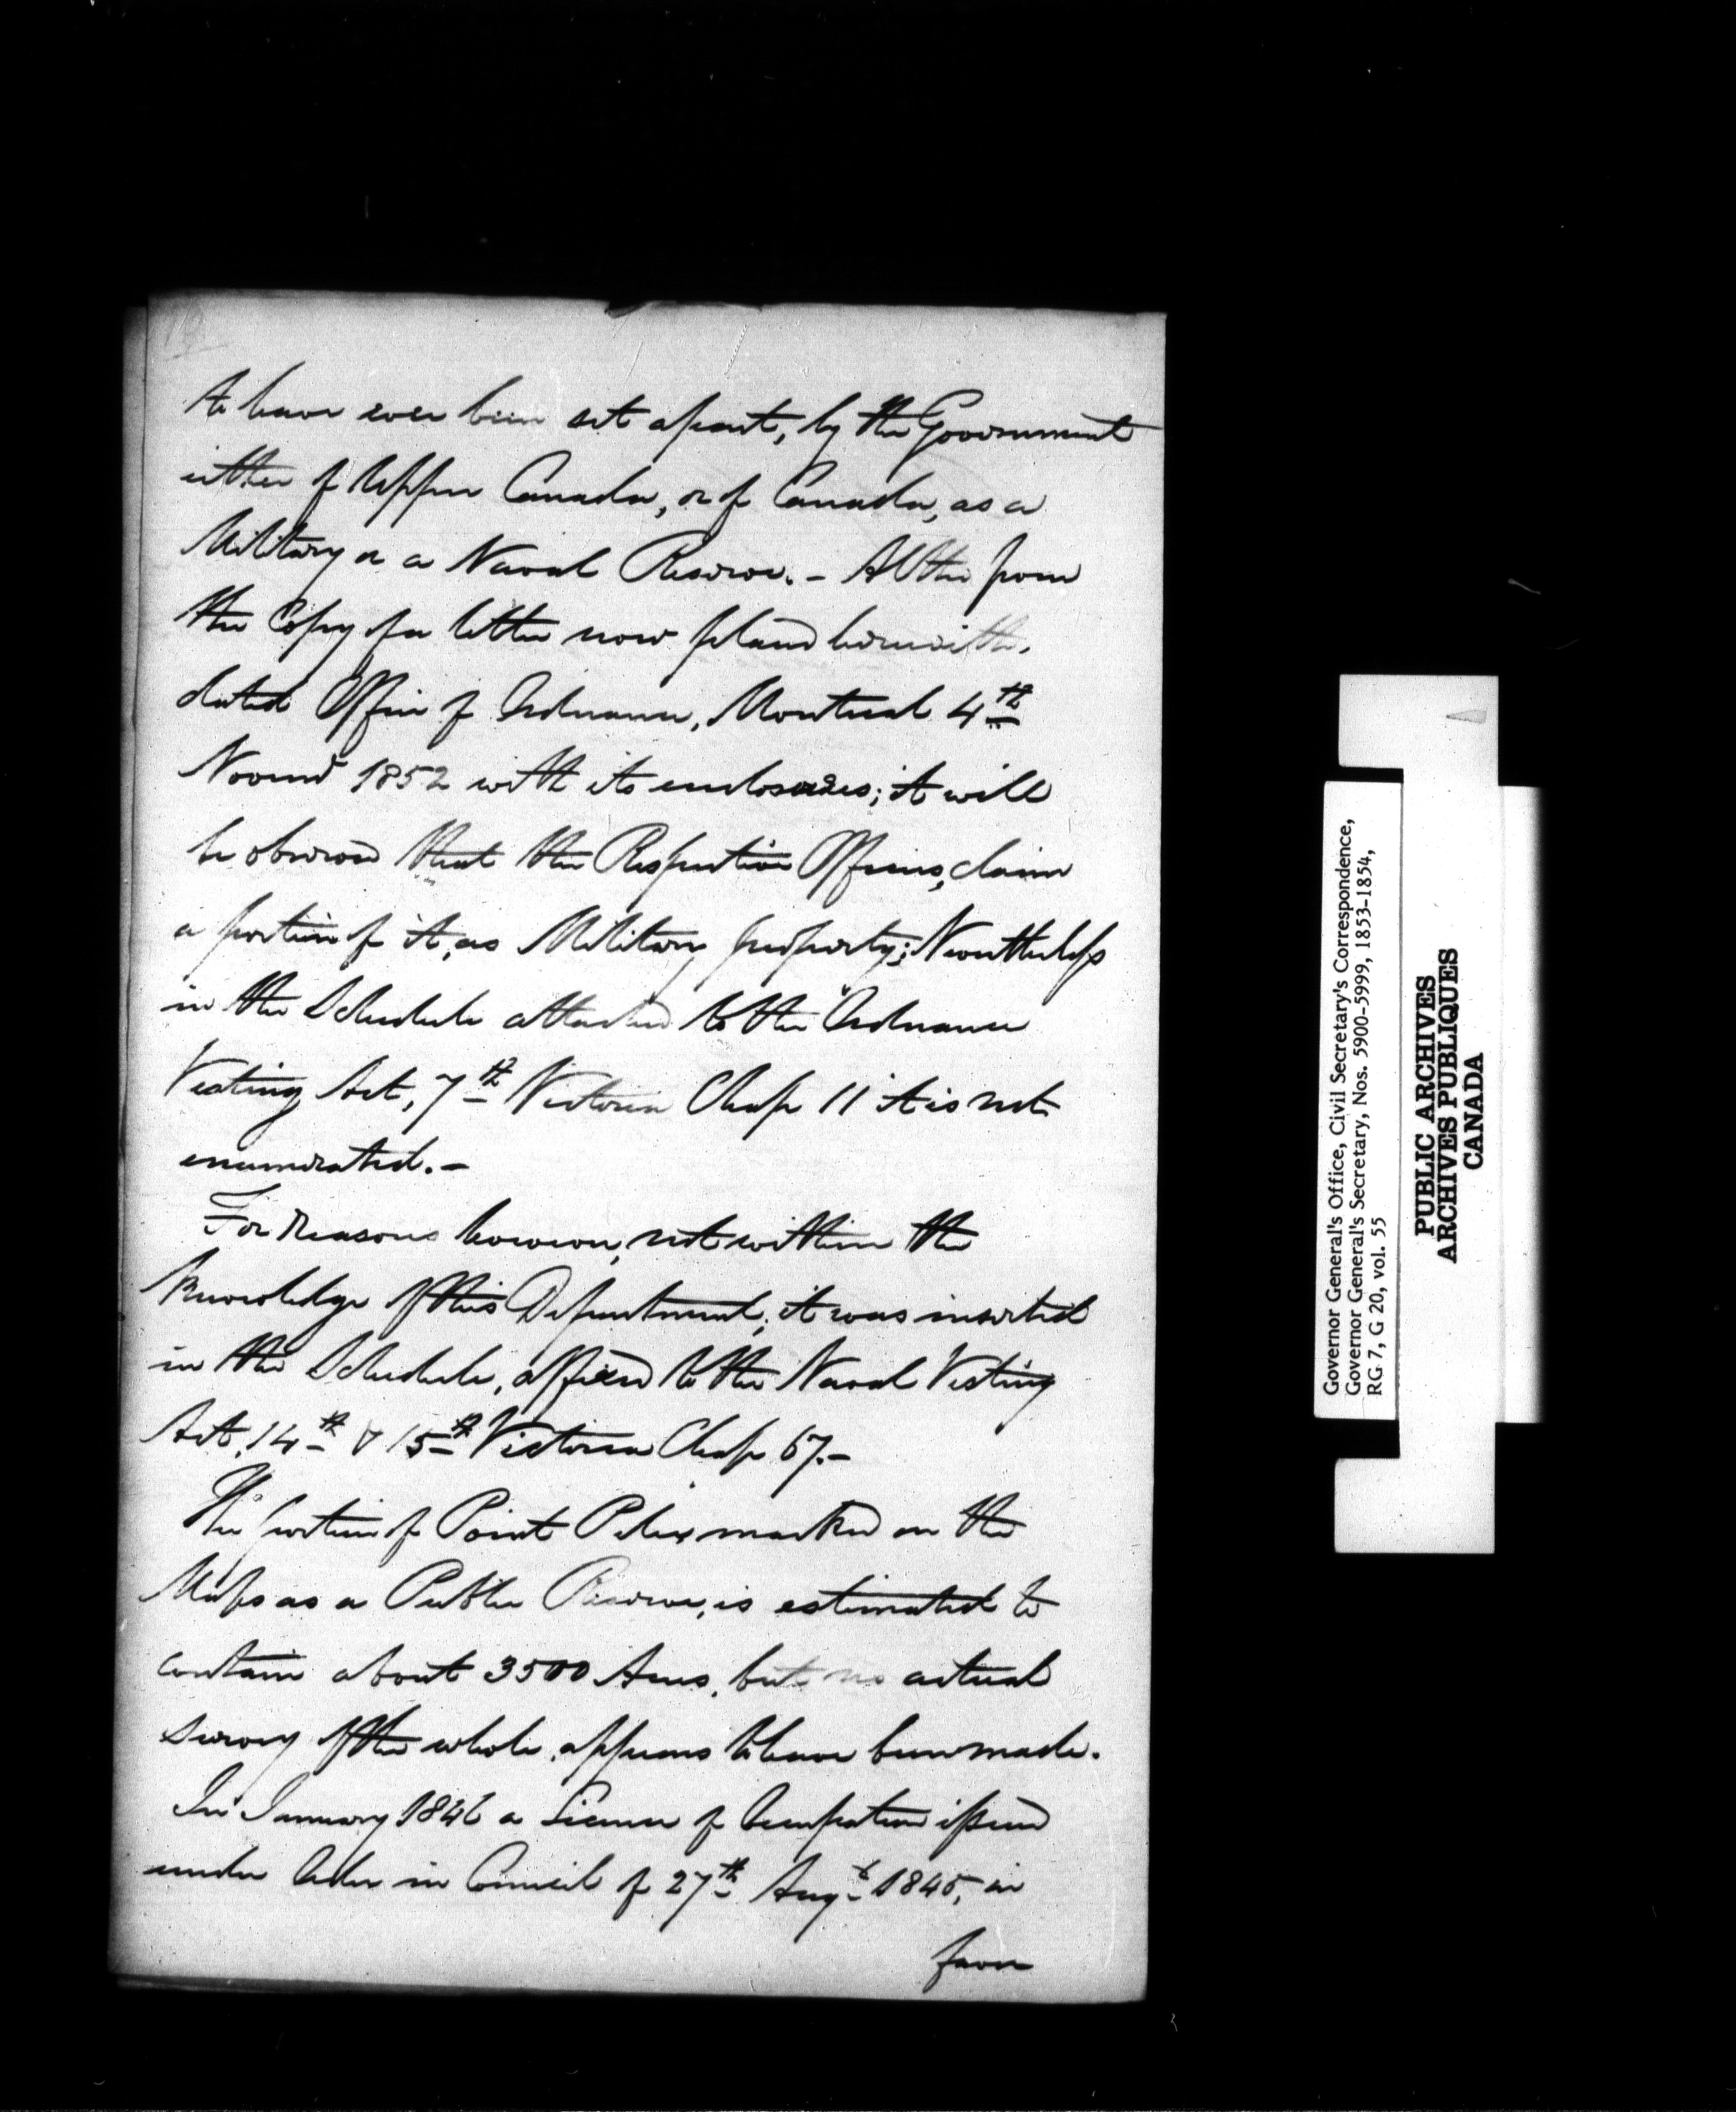 to have ever been set apart, by the Government
either of Upper Canada, or of Canada, as a
Military or a Naval Reserve. – Altho' from
the Copy of a letter now placed herewith,
dated Office of Ordnance, Montreal 4th
Novemr 1852 with its enclosures; it will
be observed that the Respective Officers, claim
a portion of it, as Military property; Nevertheless
in the Schedule attached to the Ordnance
Vesting Act, 7th Victoria Chap 11 it is not
enumerated. –
For Reasons however, not within the
knowledge of this Department, it was inserted
in the Schedule, affixed to the Naval Vesting
Act, 14th & 15th Victoria Chap 67. –
The portion of Point Pelee marked on the
Maps as a Public Reserve, is estimated to
contain about 3500 Acres, but no actual
survey of the whole, appears to have been made.
In January 1846 a License of Occupation issued
under Order in Council of 27th Augt 1845, in
favor
Governor General's Office, Civil Secretary's Correspondence,
Governor General's Secretary, Nos. 5900-5999, 1853-1854,
RG 7, G 20, vol. 55
PUBLIC ARCHIVES
ARCHIVES PUBLIQUES
CANADA